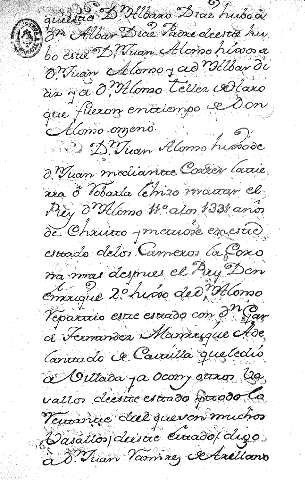 questa Dn Albaro Diaz hubo a
Dn Albar Diaz Padre deesta hu
bo esta Dn Juan Alonso hixos a
Dn Juan Alonso, y a Dn Albar Di
az, y a Dn Alonso Tellez de Aro
que fueron entiempo de Don
Alonso onzeno
Dn Juan Alonso hixo de
Dn Juan mediante
rea o Tobarla lehizo matar el
Rey Dn Alonso 11o a los 1331 años
de Christo, y metiose en este
estado delos Cameros la Coro
na mas despues el Rey Don
enrrique 2o hixo de Dn Alonso
Repartio este estado con Dn Gar
a Fernandez Manrrique Ade
lantado de Castilla que le dio
a Villada, y a Ocon, y otros Va
vallos deeste estado, y todo lo
restante del que ven muchos
Vasallos, deeste estado, digo
a Dn Juan Ramirez de Arellano